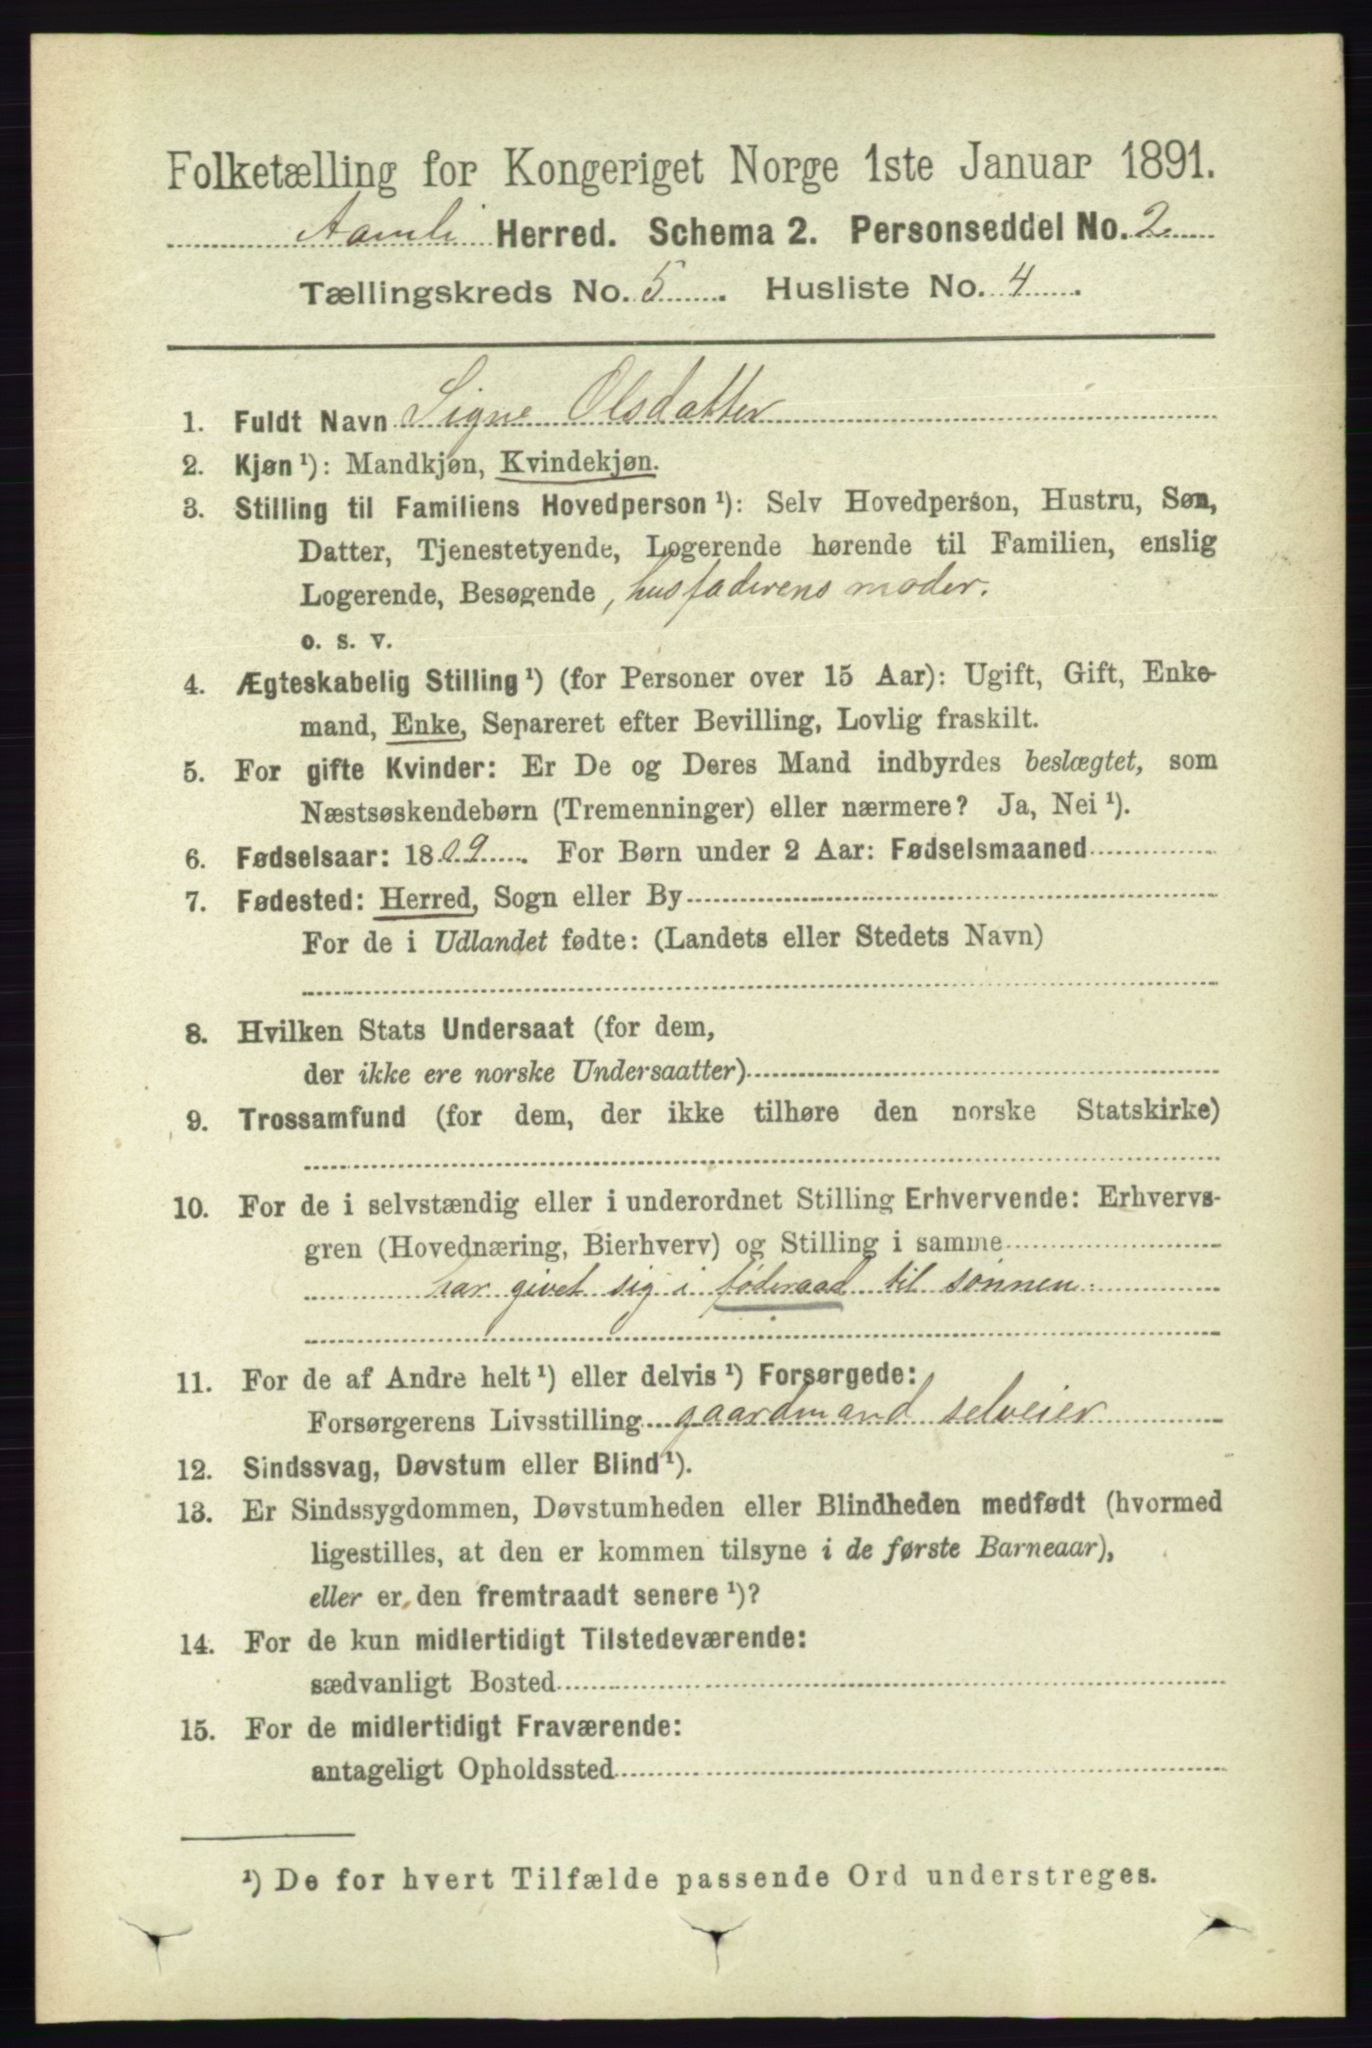 Folketælling for Kongeriget Norge 1ste Januar 1891.
Aamli Herred. Schema 2. Personseddel No. 2
Tællingskreds No. 5. Husliste No. 4.
1. Fuldt Navn Signe Olsdatter
2. Kjøn ¹): Mandkjøn, Kvindekjøn.
3. Stilling til Familiens Hovedperson ¹): Selv Hovedperson, Hustru, Søn,
Datter, Tjenestetyende, Logerende hørende til Familien, enslig
Logerende, Besøgende, husfaderens moder.
o. s. v.
4. Ægteskabelig Stilling ¹) (for Personer over 15 Aar): Ugift, Gift, Enke-
mand, Enke, Separeret efter Bevilling, Lovlig fraskilt.
5. For gifte Kvinder: Er De og Deres Mand indbyrdes beslægtet, som
Næstsøskendebørn (Tremenninger) eller nærmere? Ja, Nei ¹).
6. Fødselsaar: 1809. For Børn under 2 Aar: Fødselsmaaned
7. Fødested: Herred, Sogn eller By
For de i Udlandet fødte: (Landets eller Stedets Navn)
8. Hvilken Stats Undersaat (for dem,
der ikke ere norske Undersaatter)
9. Trossamfund (for dem, der ikke tilhøre den norske Statskirke)
10. For de i selvstændig eller i underordnet Stilling Erhvervende: Erhvervs-
gren (Hovednæring, Bierhverv) og Stilling i samme
har givet sig i føderaad til sønnen.
11. For de af Andre helt ¹) eller delvis ¹) Forsørgede:
Forsørgerens Livsstilling gaardmand selveier
12. Sindssvag, Døvstum eller Blind ¹).
13. Er Sindssygdommen, Døvstumheden eller Blindheden medfødt (hvormed
ligestilles, at den er kommen tilsyne i de første Barneaar),
eller er den fremtraadt senere ¹)?
14. For de kun midlertidigt Tilstedeværende:
sædvanligt Bosted
15. For de midlertidigt Fraværende:
antageligt Opholdssted
¹) De for hvert Tilfælde passende Ord understreges.